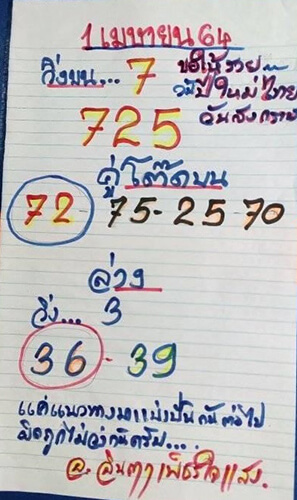 1 เมษายน 64
วิ่งบน... 7 ขอให้รวย
วันปีใหม่ไทย
725 วันสงกรานต์
คู่โต๊ดบน
72 75-25-70
ล่าง
วิ่ง... 3
36-39
แค่แนวทางมาแบ่งปันกัน
มิอถูกไม่ว่ากันครับ...
อ.